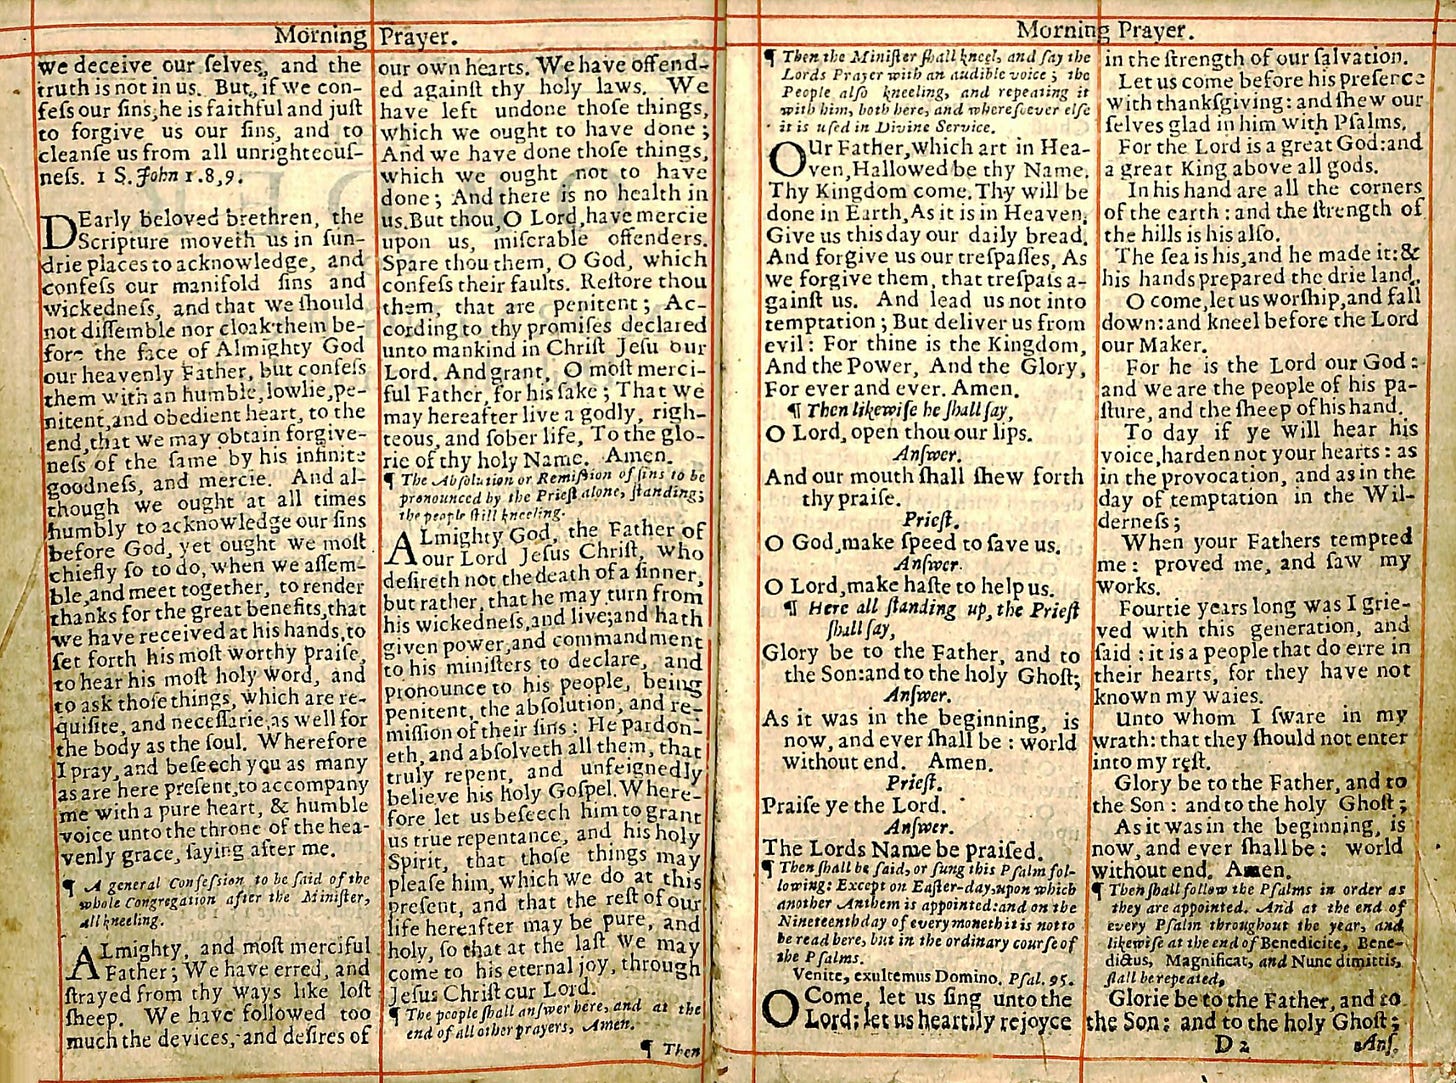 Morning Prayer.
we deceive our ſelves, and the
truth is not in us. But, if we con-
feſs our ſins, he is faithful and juſt
to forgive us our ſins, and to
cleanſe us from all unrighteouſ-
neſs. 1 S. John 1. 8, 9.
DEarly beloved brethren, the
Scripture moveth us in ſun-
drie places to acknowledge, and
confeſs our manifold ſins and
wickedneſs, and that we ſhould
not diſſemble nor cloak them be-
fore the face of Almighty God
our heavenly Father, but confeſs
them with an humble, lowlie, pe-
nitent, and obedient heart, to the
end, that we may obtain forgive-
neſs of the ſame by his infinite
goodneſs, and mercie. And al-
though we ought at all times
humbly to acknowledge our ſins
before God, yet ought we moſt
chiefly ſo to do, when we aſſem-
ble, and meet together, to render
thanks for the great benefits, that
we have received at his hands, to
ſet forth his moſt worthy praiſe,
to hear his moſt holy word, and
to ask thoſe things, which are re-
quiſite, and neceſſarie, as well for
the body as the ſoul. Wherefore
I pray, and beſeech you as many
as are here preſent, to accompany
me with a pure heart, & humble
voice unto the throne of the hea-
venly grace, ſaying after me.
¶ A general Confeſſion to be ſaid of the
whole Congregation after the Miniſter,
all kneeling.
ALmighty, and moſt merciful
Father; We have erred, and
ſtrayed from thy ways like loſt
ſheep. We have followed too
much the devices, and deſires of
our own hearts. We have offend-
ed againſt thy holy laws. We
have left undone thoſe things,
which we ought to have done;
And we have done thoſe things,
which we ought not to have
done; And there is no health in
us. But thou, O Lord, have mercie
upon us, miſerable offenders.
Spare thou them, O God, which
confeſs their faults. Reſtore thou
them, that are penitent; Ac-
cording to thy promiſes declared
unto mankind in Chriſt Jeſu our
Lord. And grant, O moſt merci-
ful Father, for his ſake; That we
may hereafter live a godly, righ-
teous, and ſober life, To the glo-
rie of thy holy Name. Amen.
¶ The Abſolution or Remiſſion of ſins to be
pronounced by the Prieſt alone, ſtanding;
the people ſtill kneeling.
ALmighty God, the Father of
our Lord Jeſus Chriſt, who
deſireth not the death of a ſinner,
but rather, that he may turn from
his wickedneſs, and live; and hath
given power, and commandment
to his miniſters to declare, and
pronounce to his people, being
penitent, the abſolution, and re-
miſſion of their ſins: He pardon-
eth, and abſolveth all them, that
truly repent, and unfeignedly
believe his holy Goſpel. Where-
fore let us beſeech him to grant
us true repentance, and his holy
Spirit, that thoſe things may
pleaſe him, which we do at this
preſent, and that the reſt of our
life hereafter may be pure, and
holy, ſo that at the laſt we may
come to his eternal joy, through
Jeſus Chriſt our Lord.
¶ The people ſhall anſwer here, and at the
end of all other prayers, Amen.
¶ Then
Morning Prayer.
¶ Then the Miniſter ſhall kneel, and ſay the
Lords Prayer with an audible voice; the
People alſo kneeling, and repeating it
with him, both here, and whereſoever elſe
it is uſed in Divine Service.
OUr Father, which art in Hea-
ven, Hallowed be thy Name.
Thy Kingdom come. Thy will be
done in Earth, As it is in Heaven.
Give us this day our daily bread.
And forgive us our treſpaſſes, As
we forgive them, that treſpaſs a-
gainſt us. And lead us not into
temptation; But deliver us from
evil: For thine is the Kingdom,
And the Power, And the Glory,
For ever and ever. Amen.
¶ Then likewiſe he ſhall ſay,
O Lord, open thou our lips.
Anſwer.
And our mouth ſhall ſhew forth
thy praiſe.
Prieſt.
O God, make ſpeed to ſave us.
Anſwer.
O Lord, make haſte to help us.
¶ Here all ſtanding up, the Prieſt
ſhall ſay,
Glory be to the Father, and to
the Son: and to the holy Ghoſt;
Anſwer.
As it was in the beginning, is
now, and ever ſhall be: world
without end. Amen.
Prieſt.
Praiſe ye the Lord.
Anſwer.
The Lords Name be praiſed.
¶ Then ſhall be ſaid, or ſung this Pſalm fol-
lowing: Except on Eaſter-day, upon which
another Anthem is appointed: and on the
Nineteenth day of every moneth it is not to
be read here, but in the ordinary courſe of
the Pſalms.
Venite, exultemus Domino. Pſal. 95.
O Come, let us ſing unto the
Lord; let us heartily rejoyce
in the ſtrength of our ſalvation.
Let us come before his preſence
with thankſgiving: and ſhew our
ſelves glad in him with Pſalms,
For the Lord is a great God: and
a great King above all gods.
In his hand are all the corners
of the earth: and the ſtrength of
the hills is his alſo.
The ſea is his, and he made it: &
his hands prepared the drie land.
O come, let us worſhip, and fall
down: and kneel before the Lord
our Maker.
For he is the Lord our God:
and we are the people of his pa-
ſture, and the ſheep of his hand.
To day if ye will hear his
voice, harden not your hearts: as
in the provocation, and as in the
day of temptation in the Wil-
derneſs;
When your Fathers tempted
me: proved me, and ſaw my
works.
Fourtie years long was I grie-
ved with this generation, and
ſaid: it is a people that do erre in
their hearts, for they have not
known my waies.
Unto whom I ſware in my
wrath: that they ſhould not enter
into my reſt.
Glory be to the Father, and to
the Son: and to the holy Ghoſt;
As it was in the beginning, is
now, and ever ſhall be: world
without end. Amen.
¶ Then ſhall follow the Pſalms in order as
they are appointed. And at the end of
every Pſalm throughout the year, and
likewiſe at the end of Benedicite, Bene-
dictus, Magnificat, and Nunc dimittis,
ſhall be repeated,
Glorie be to the Father, and to
the Son: and to the holy Ghoſt;
D 2 Anſ.